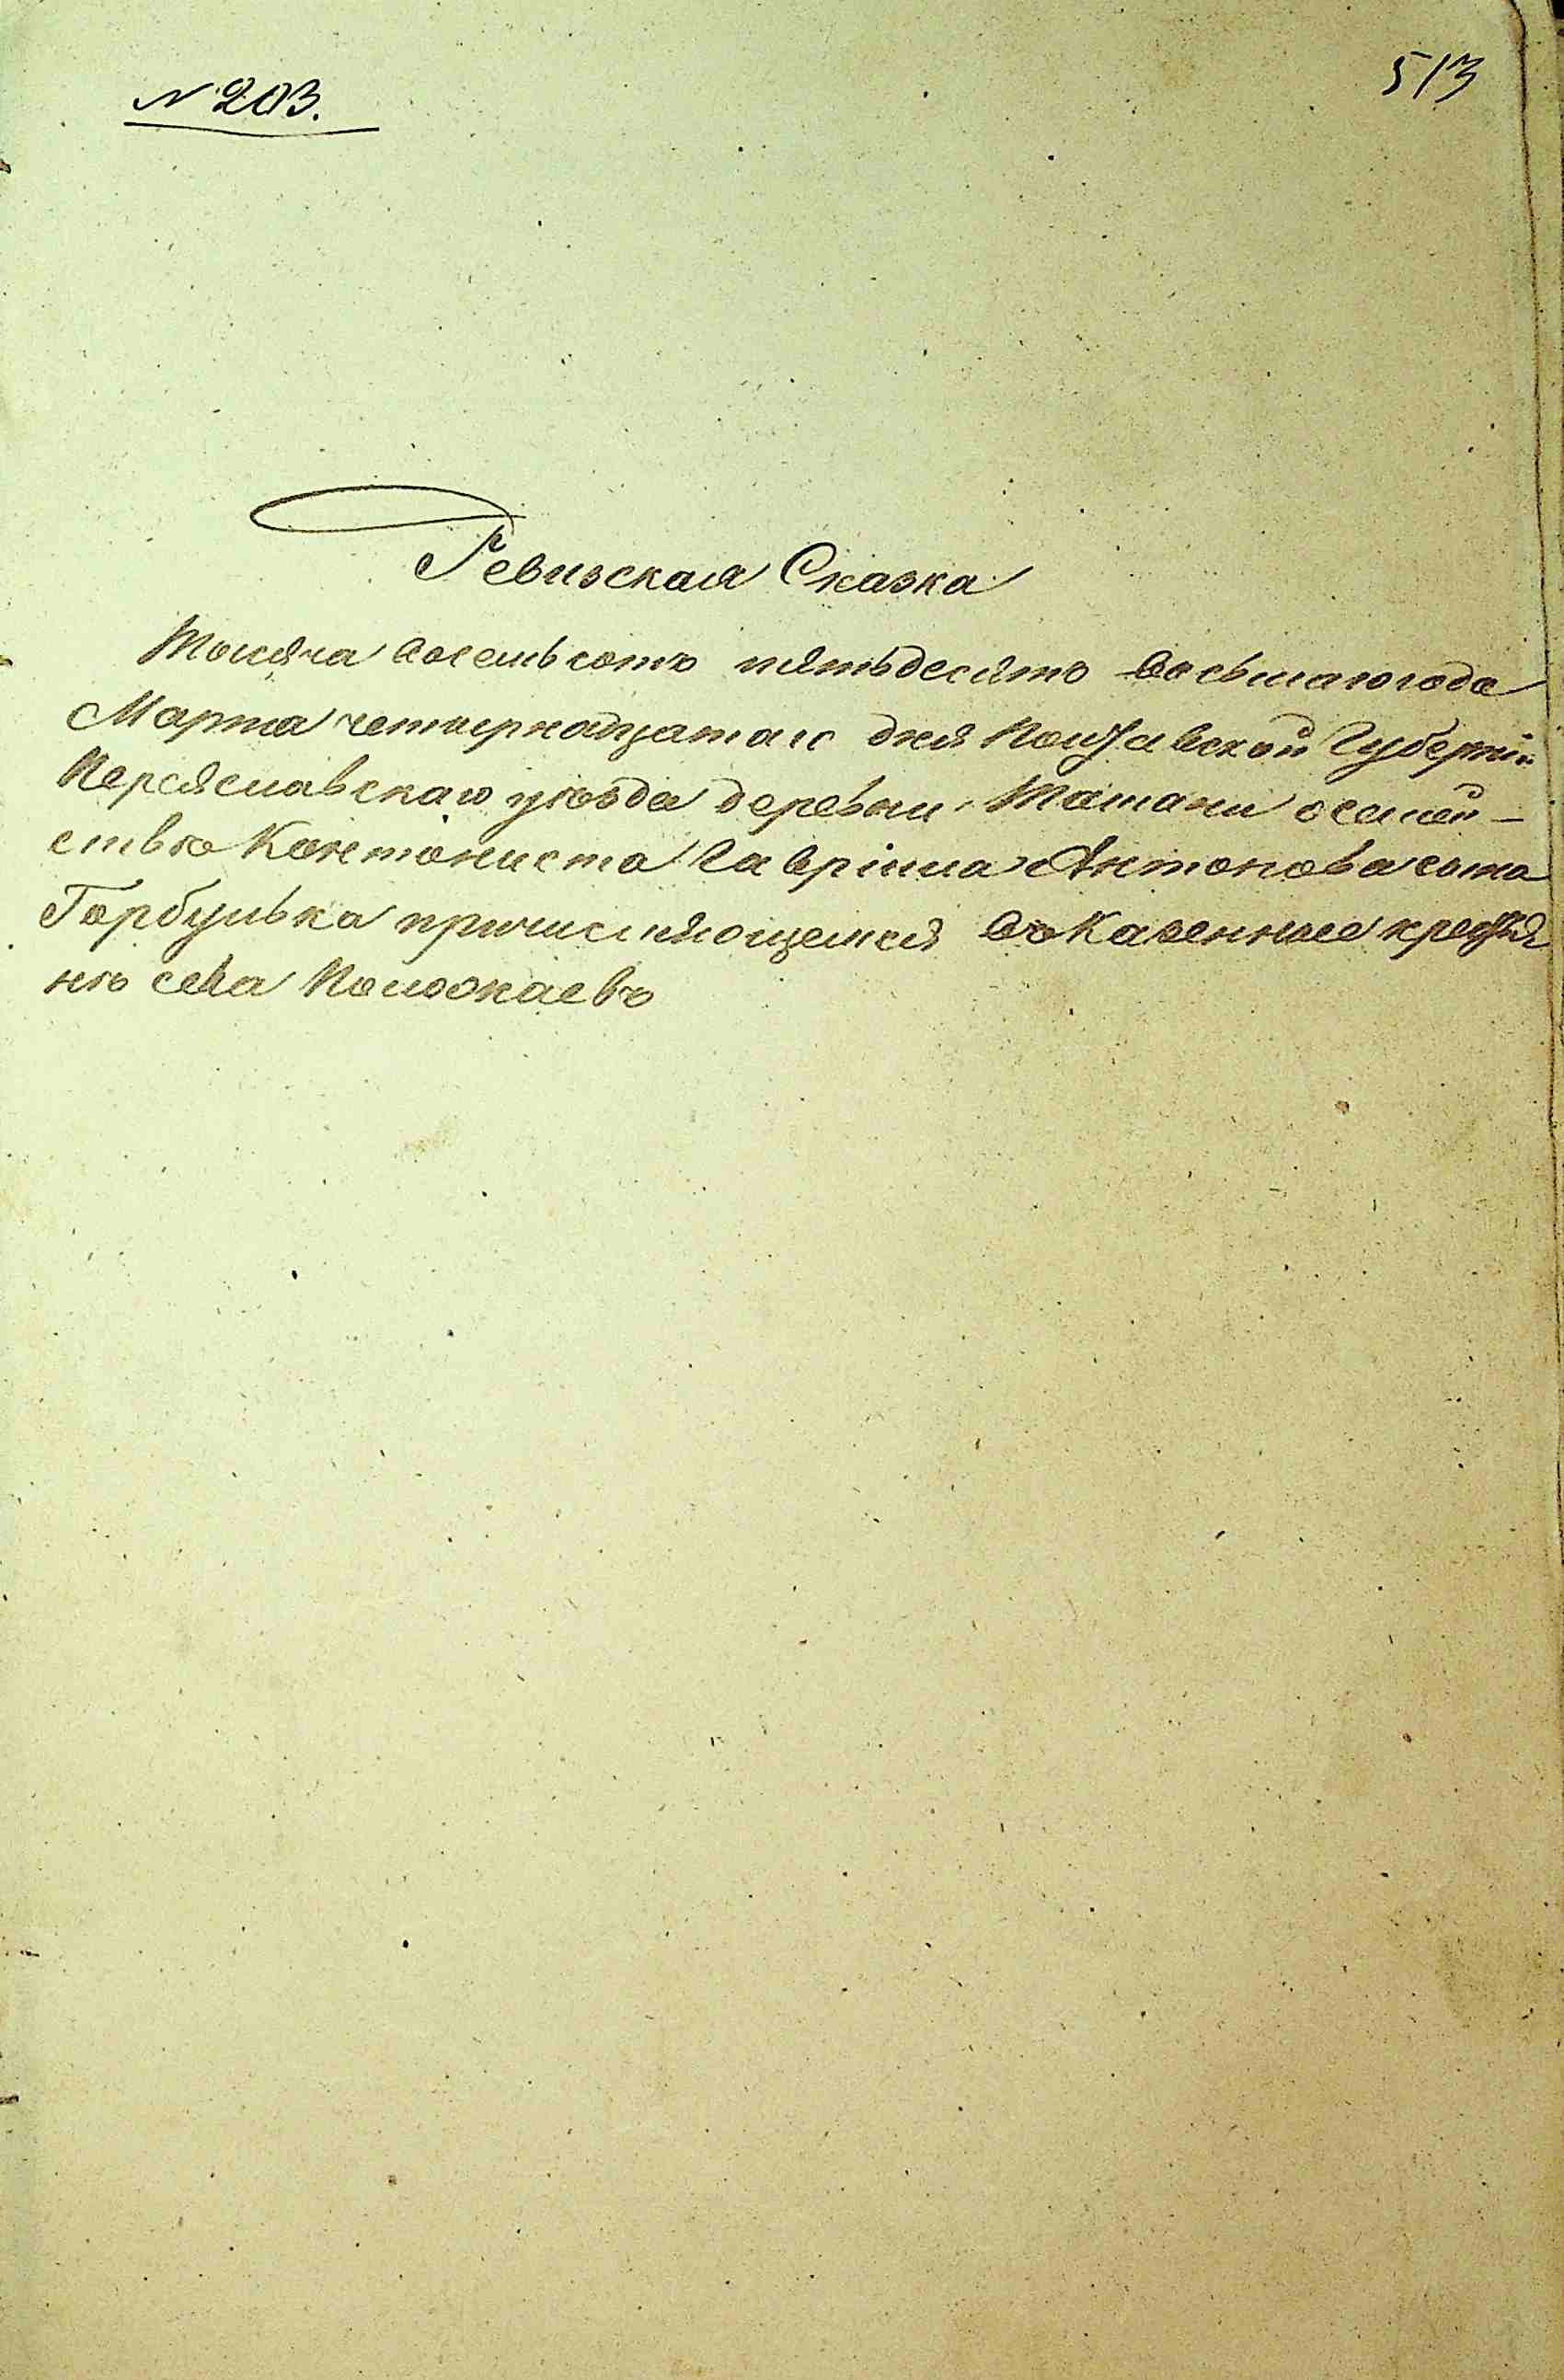 N 203.
513
Ревизская Сказка
Тысяча восемьсотъ пятьдесятъ восьмаго года
Марта четырнадцатаго дня Полтавской Губерніи
Переяславскаго уѣзда деревни Ташани о семей-
ствѣ Кантониста Гавріила Антонова сына
Горбулька причисляющемся въ Казенные крестья
нѣ села Положаевъ